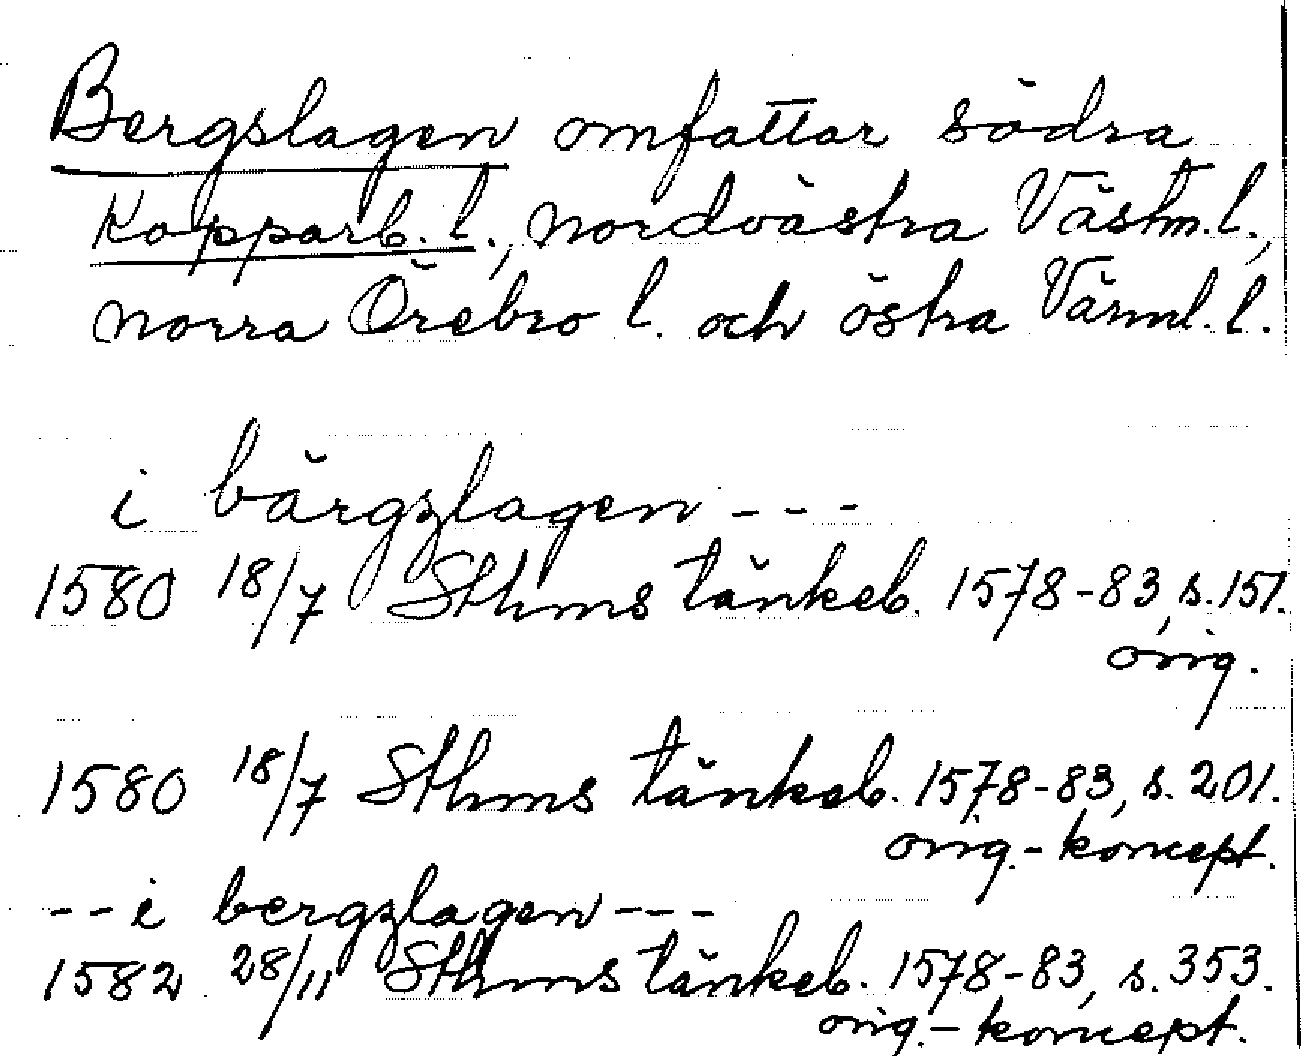 Bergslagen omfattar södra
Kopparb. l., nordvästra Västm. l.,
norra Örebro l. och östra Värml. l.
i bärgzlagen - - -
1580 18/7 Sthms tänkeb. 1578-83, s. 151.
orig.
1580 18/7 Sthms tänkeb. 1578-83, s. 201.
orig.- koncept.
- - i bergzlagen - - -
1582 28/11 Sthms tänkeb. 1578-83, s. 353.
orig.- koncept.